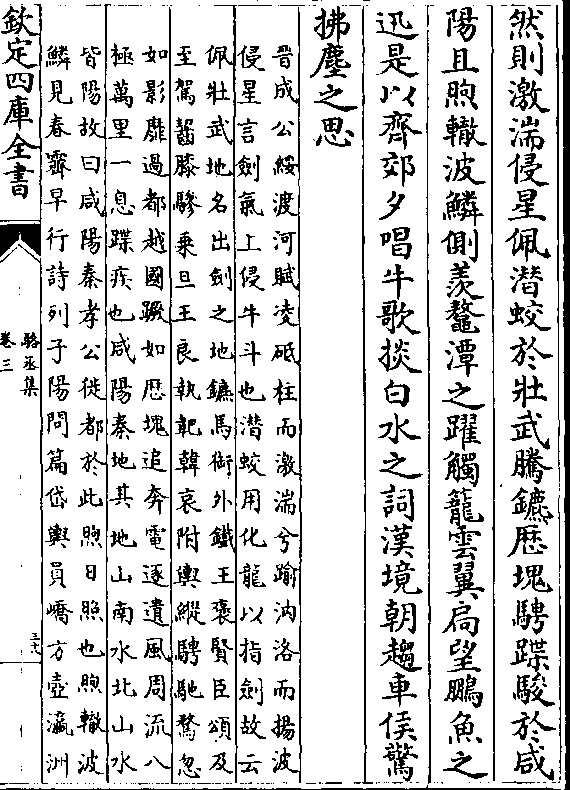 然則激湍侵星佩潛蛟於壯武騰鑣厯塊騁蹀駿於咸
陽且煦轍波鱗側羨鼇潭之躍觸籠雲翼扃望鵬魚之
迅是以齊郊夕唱牛歌掞白水之詞漢境朝趨車俟驚
拂塵之思
晉成公綏渡河賦凌砥柱而激湍兮踰汭洛而揚波
侵星言劍氣上侵牛斗也潛蛟用化龍以指劍故云
佩壯武地名出劍之地鑣馬銜外鐵王褒賢臣頌及
至駕齧膝驂乘旦王良執靶韓哀附輿縱騁馳騖忽
如影靡過都越國蹶如厯塊追奔電逐遺風周流八
極萬里一息蹀疾也咸陽秦地其地山南水北山水
皆陽故曰咸陽秦孝公徙都於此煦日照也煦轍波
鱗見春霽早行詩列子陽問篇岱輿員嶠方壺瀛洲
欽定四庫全書
駱丞集
卷三